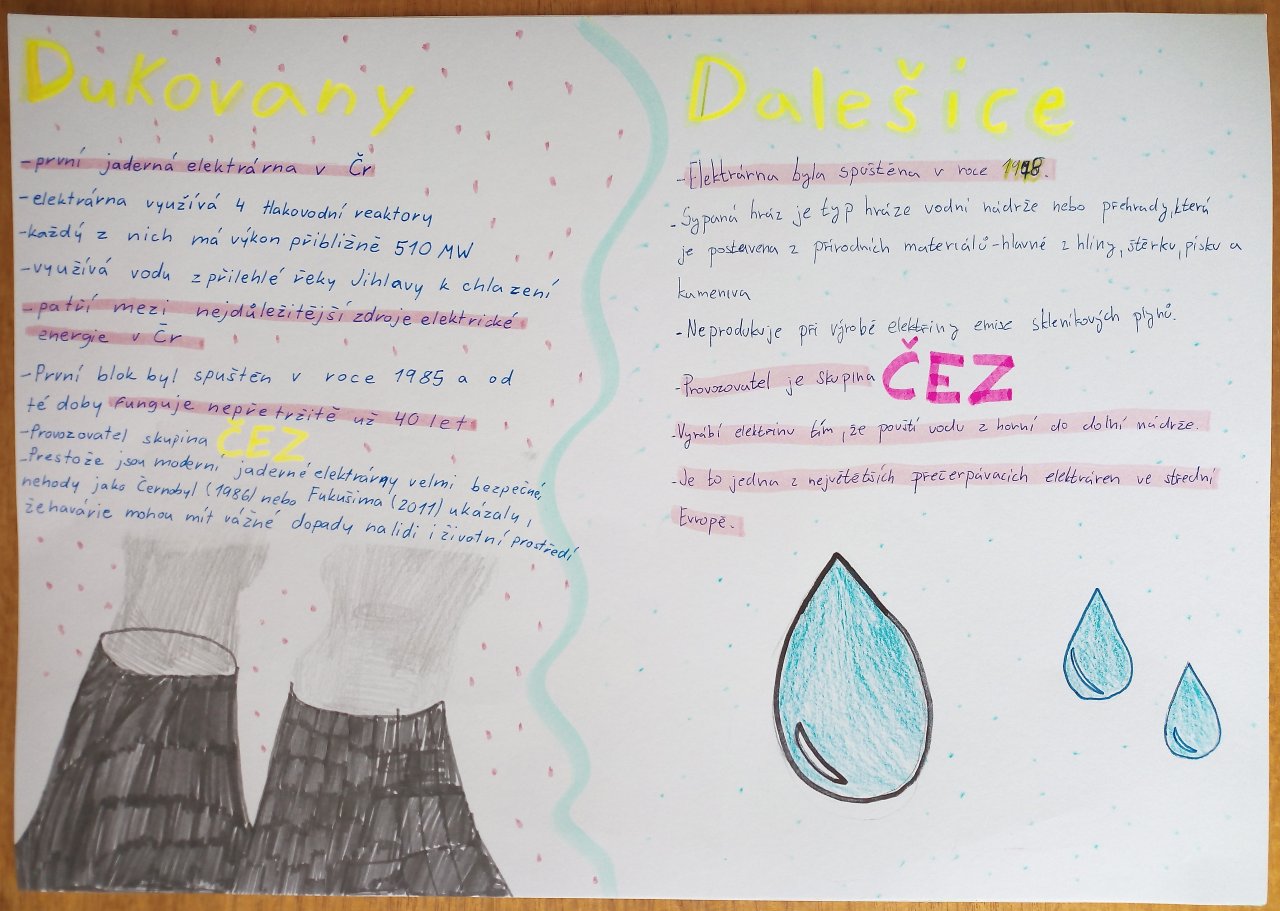 Dukovany
- první jaderná elektrárna v Čr
- elektrárna využívá 4 tlakovodní reaktory
- každý z nich má výkon přibližně 510 MW
- využívá vodu z přilehlé řeky Jihlavy k chlazení
- patří mezi nejdůležitější zdroje elektrické
energie v Čr
- První blok byl spuštěn v roce 1985 a od
té doby funguje nepřetržitě už 40 let
- Provozovatel skupina ČEZ
- Prestože jsou moderní jaderné elektrárny velmi bezpečné,
nehody jako Černobyl (1986) nebo Fukušima (2011) ukázaly,
že havárie mohou mít vážné dopady na lidi i životní prostředí
Dalešice
- Elektrárna byla spuštěna v roce
- Sypaná hráz je typ hráze vodní nádrže nebo přehrady, která
je postavena z přírodních materiálů - hlavné z hlíny, štěrku, písku a
kameniva
- Neprodukuje při výrobě elektřiny emise skleníkových plynů.
- Provozovatel je skupina ČEZ
- Vyrábí elektřinu tím, že pouští vodu z horní do dolní nádrže.
- Je to jedna z největětších přečerpávacích elektráren ve střední
Evropě.